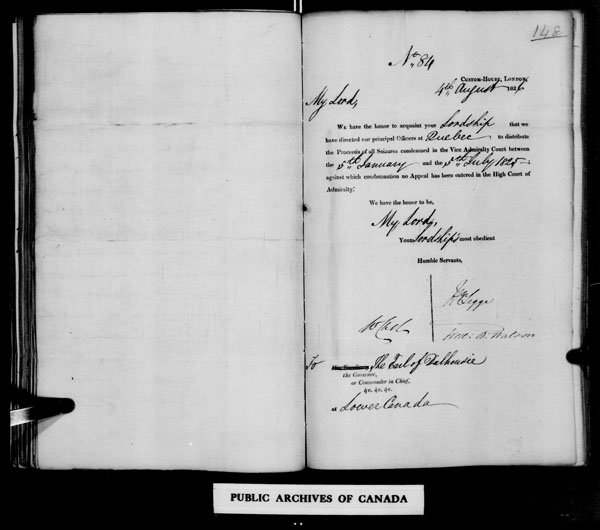 148
No. 84
CUSTOM-HOUSE, LONDON,
4th August 1826
My Lord,
WE have the honor to acquaint your Lordship that we
have directed our principal Officers at Quebec to distribute
the Proceeds of all Seizures condemned in the Vice Admiralty Court between
the 5th January and the 5th July 1825
against which condemnation no Appeal has been entered in the High Court of
Admiralty.
We have the honor to be,
My Lord,
Your Lordship's most obedient
Humble Servants,
H Legge
W Cust
To The Earl of Dalhousie
the Governor,
or Commander in Chief,
&c. &c. &c.
at Lower Canada
PUBLIC ARCHIVES OF CANADA